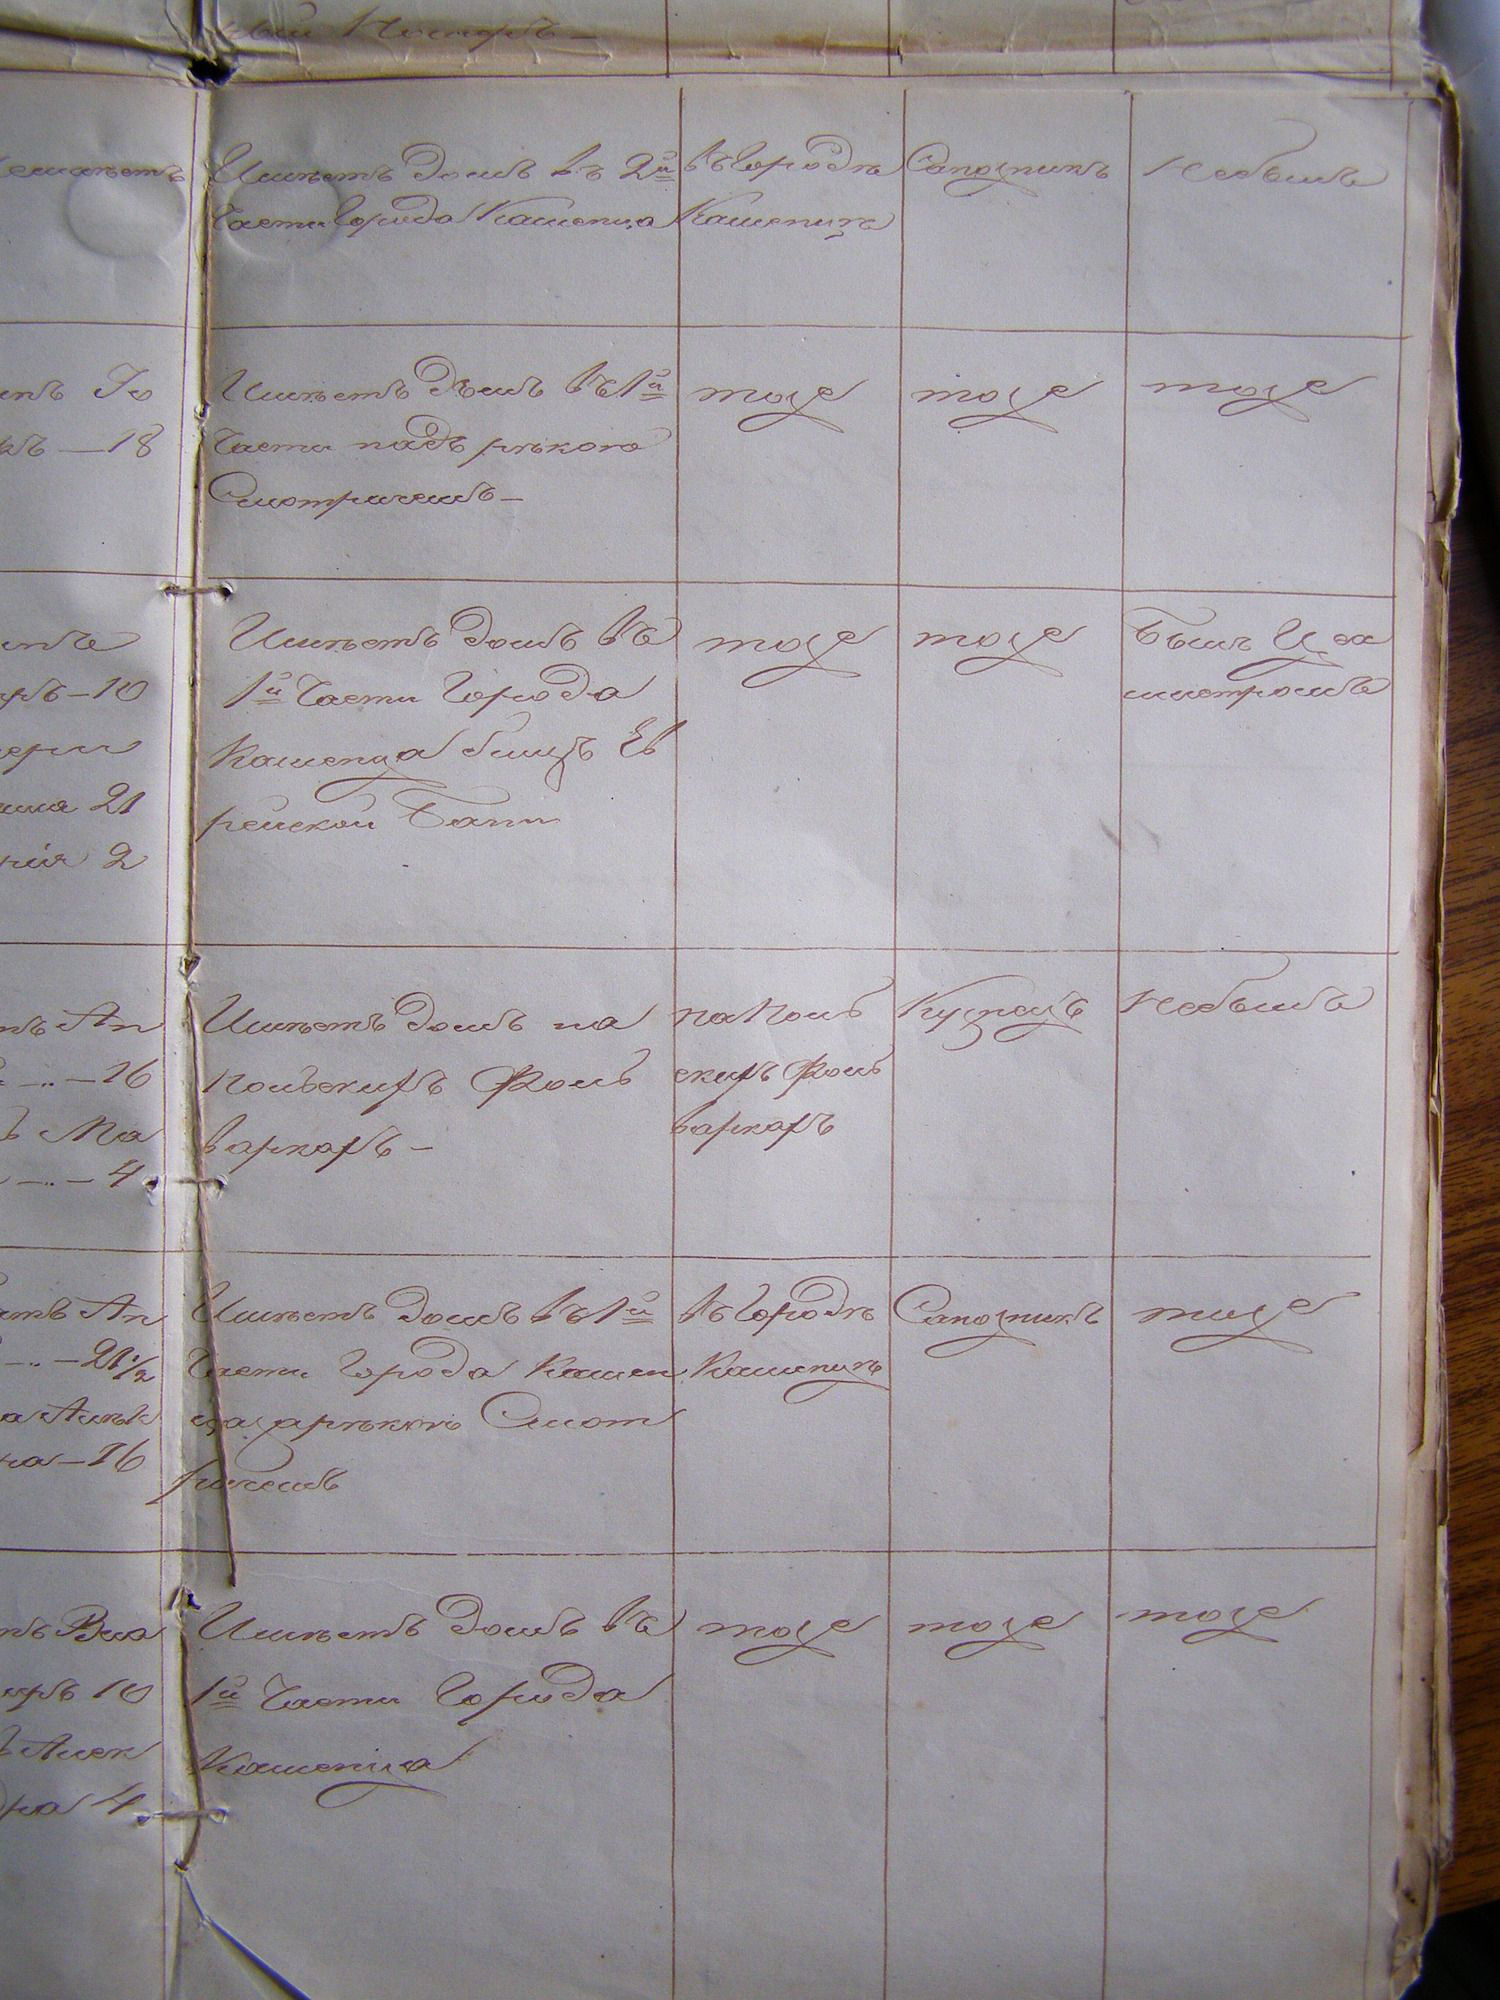 Имѣетъ домъ въ 2й
части Города Каменца
въ Городѣ
Каменцѣ
Сапожникъ
Небылъ
18
Имѣетъ домъ въ 1й
Части надъ рѣкою
Смотричемъ —
тоже
тоже
тоже
10
21
2
Имѣетъ домъ въ
1й Части Города
Каменца близъ Ев
рейской Бани
тоже
тоже
Былъ Цех
мистромъ
нъ Ан
— 16
Ма
— 4
Имѣетъ домъ на
Польскихъ Фоль
варкахъ —
на Поль
скихъ Фоль
варкахъ
Кузнецъ
Небылъ
Ан
— 21 1/2
на — 16
Имѣетъ домъ въ 1й
Части Города Камен
ца за рѣкою Смот
ричемъ
въ Городѣ
Каменцѣ
Сапожникъ
тоже
10
Алек
дра 4
Имѣетъ домъ въ
1й Части Города
Каменца
тоже
тоже
тоже